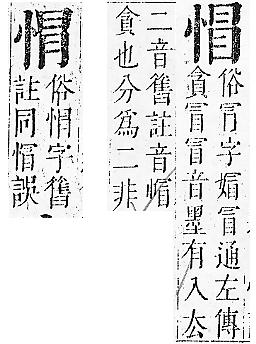 俗冐字媢冒通左傳
貪冒冒音墨有入厺
二音舊註音帽
貪也分爲二非
俗悁字舊
註同誤